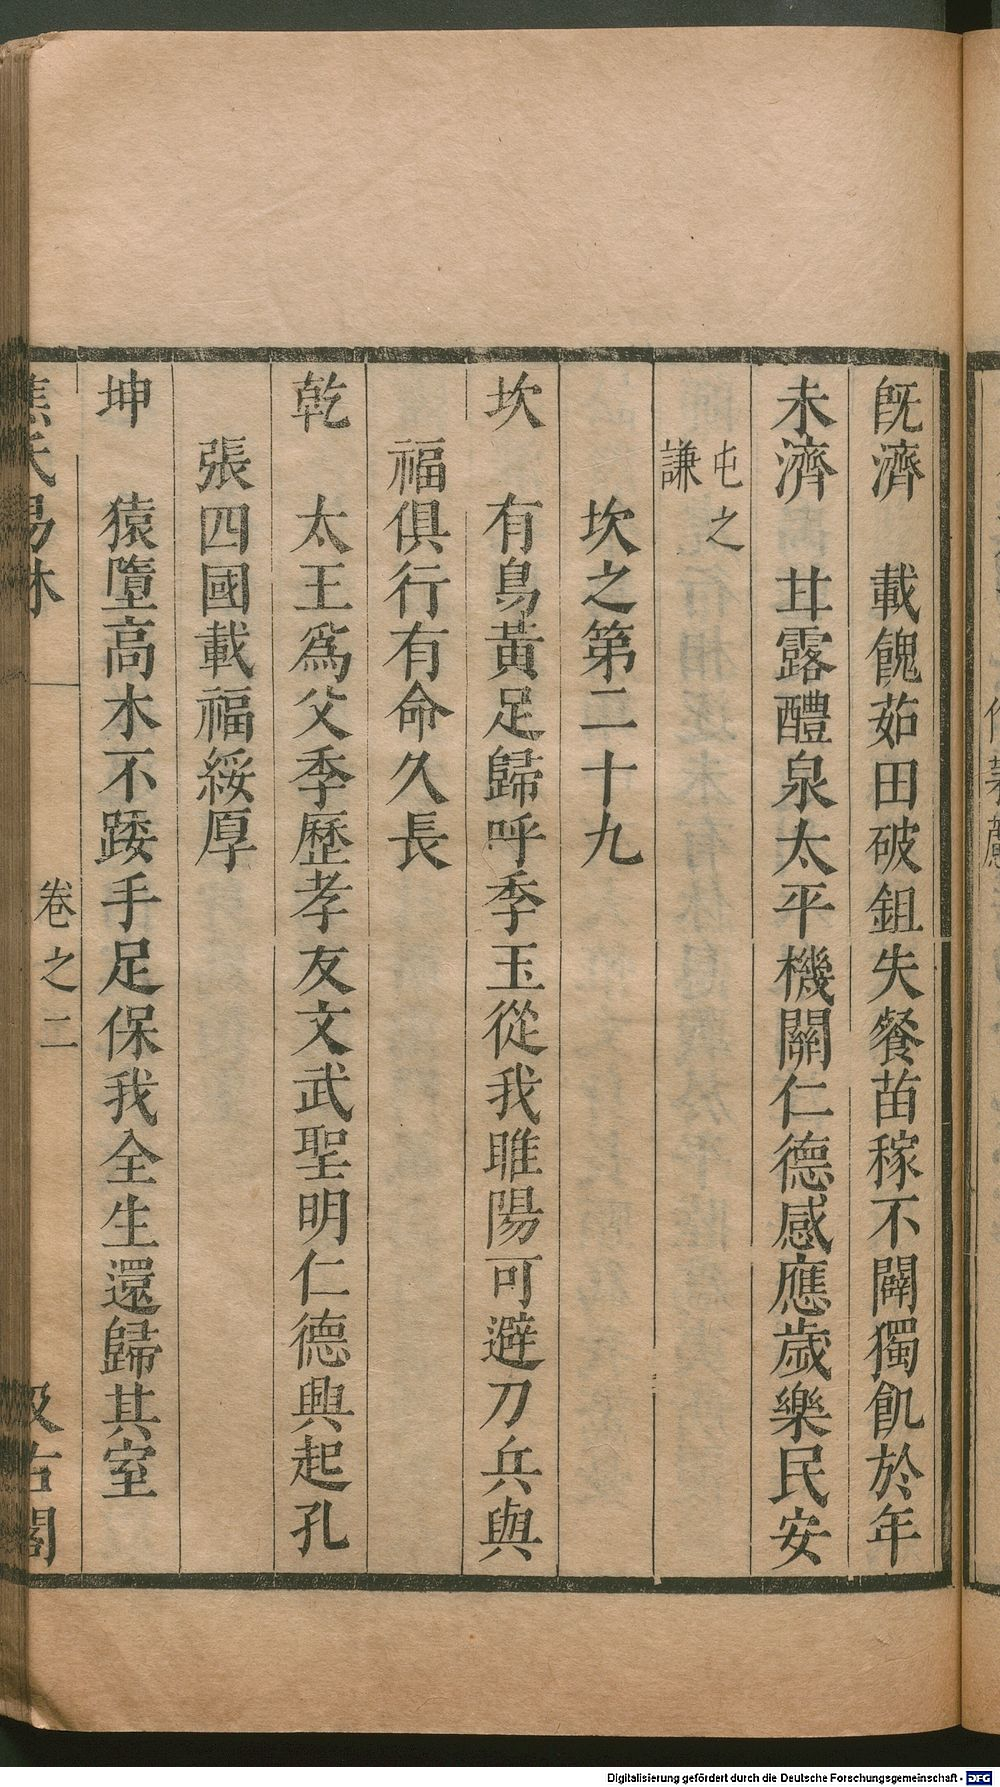 既濟　載餽茹田破鉏失餐苗稼不闢獨飢於年
未濟　甘露醴泉太平機關仁德感應歲樂民安
屯之
謙
坎之第二十九
坎　有鳥黃足歸呼季玉從我睢陽可避刀兵與
福俱行有命久長
乾　太王爲父季歷孝友文武聖明仁德興起孔
張四國載福綏厚
坤　猿墮高木不踒手足保我全生還歸其室
焦氏易林
卷之二
汲古閣
Digitalisierung gefördert durch die Deutsche Forschungsgemeinschaft - DFG